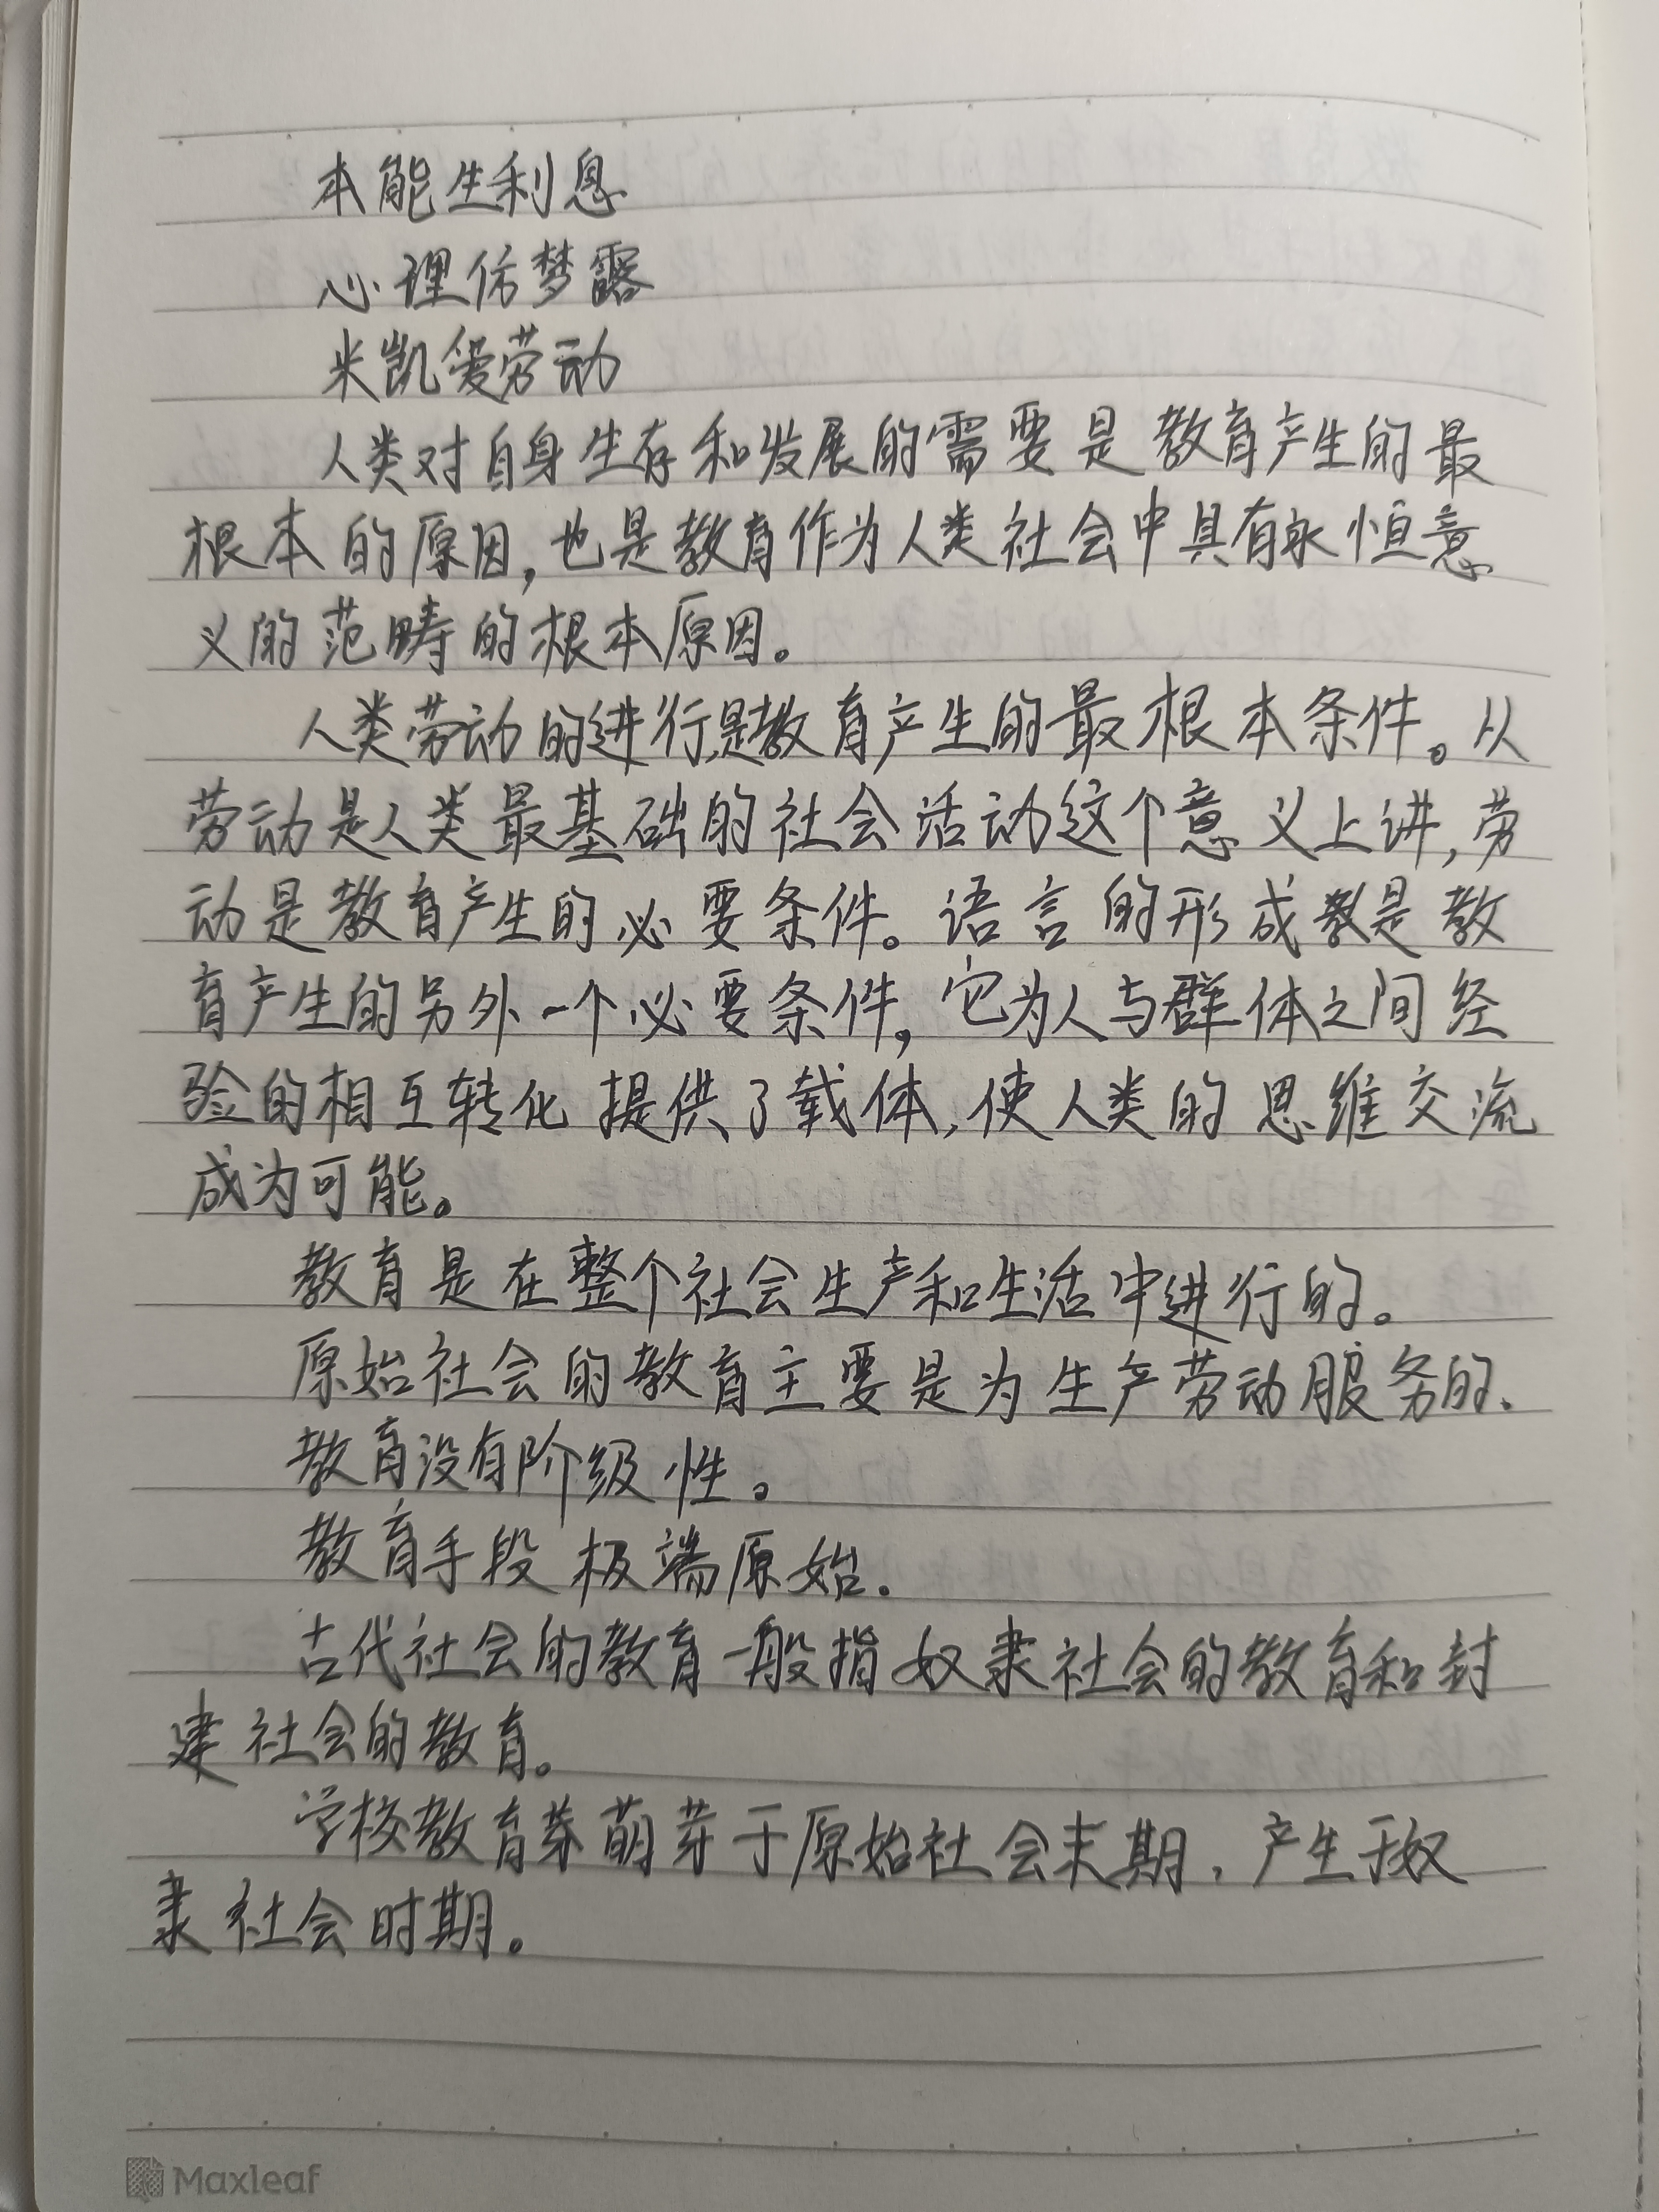 本能生利息
心理仿梦露
米凯爱劳动
人类对自身生存和发展的需要是教育产生的最
根本的原因，也是教育作为人类社会中具有永恒意
义的范畴的根本原因。
人类劳动的进行是教育产生的最根本条件。从
劳动是人类最基础的社会活动这个意义上讲，劳
动是教育产生的必要条件。语言的形成是教
育产生的另外一个必要条件，它为人与群体之间经
验的相互转化提供了载体，使人类的思维交流
成为可能。
教育是在整个社会生产和生活中进行的。
原始社会的教育主要是为生产劳动服务的、
教育没有阶级性。
教育手段极端原始.
古代社会的教育一般指奴隶社会的教育和封
建社会的教育。
学校教育萌芽于原始社会末期，产生于奴
隶社会时期。
Maxleaf